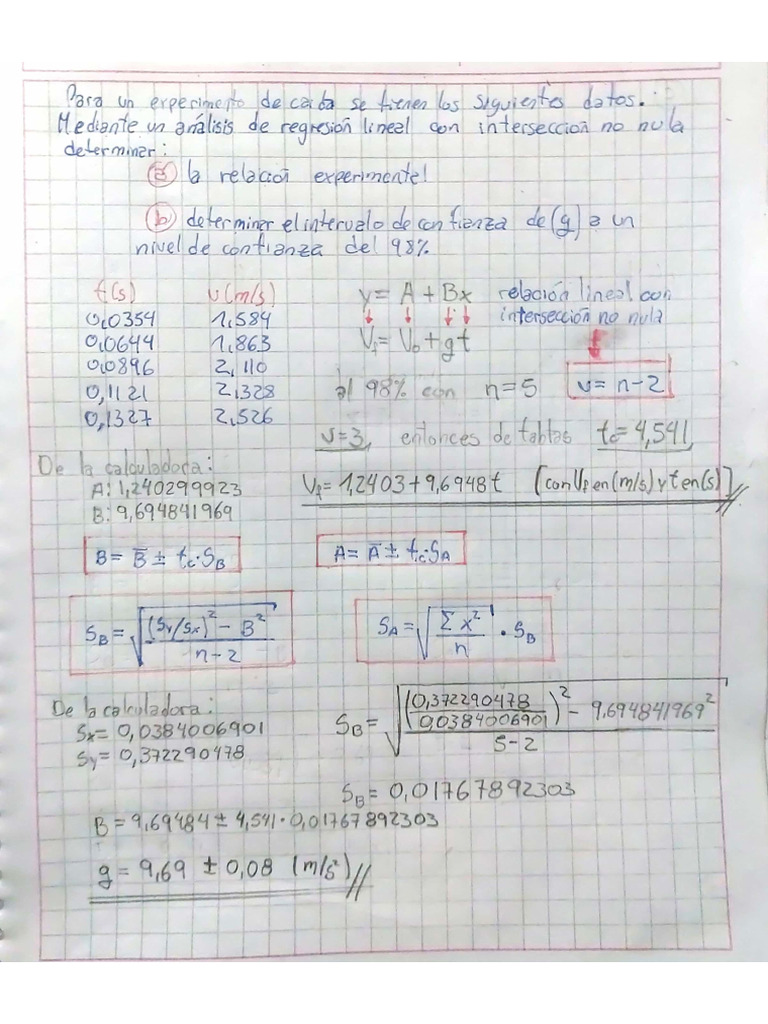 Para un experimento de caida se tienen los siguientes datos.
Mediante un análisis de regresión lineal con intersección no nula
determinar:
a la relación experimentel
b determinar el intervalo de confianza de (g) a un
nivel de confianza del 98%
t(s) v(m/s)
0,0354 1,584
0,0644 1,863
0,0896 2,110
0,1121 2,328
0,1327 2,526
y = A + Bx relación lineal con
intersección no nula
Vf = Vo + gt
al 98% con n=5 ν = n-2
ν=3, entonces de tablas tc=4,541
De la calculadora:
A: 1,240299923
B: 9,694841969
Vf = 1,2403 + 9,6948t [con Vf en (m/s) y t en (s)]
B = B̅ ± tc·SB
A = A̅ ± tc·SA
SB = √(((Sy/Sx)² - B²)/(n-2))
SA = √(Σx²/n) · SB
De la calculadora:
Sx = 0,0384006901
Sy = 0,372290478
SB = √(((0,372290478/0,0384006901)² - 9,694841969²)/(5-2))
SB = 0,01767892303
B = 9,69484 ± 4,541·0,01767892303
g = 9,69 ± 0,08 (m/s²)